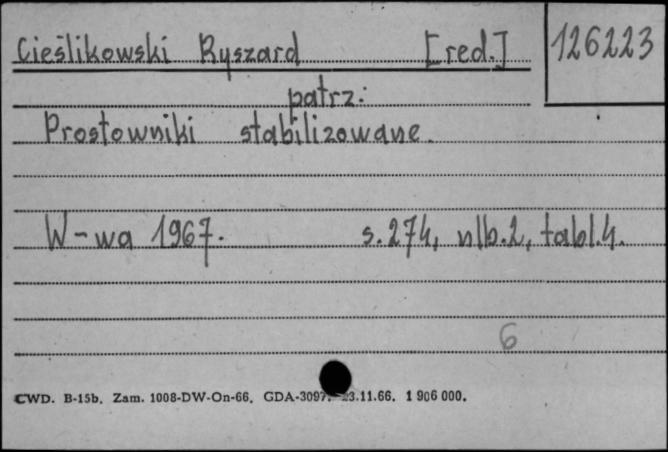 Cieślikowski Ryszard [red.] 126223
patrz:
Prostowniki stabilizowane.
W-wa 1967. s. 274, nlb. 2, tabl. 4.
6
CWD. B-15b. Zam. 1008-DW-On-66. GDA-3097. 23.11.66. 1 906 000.